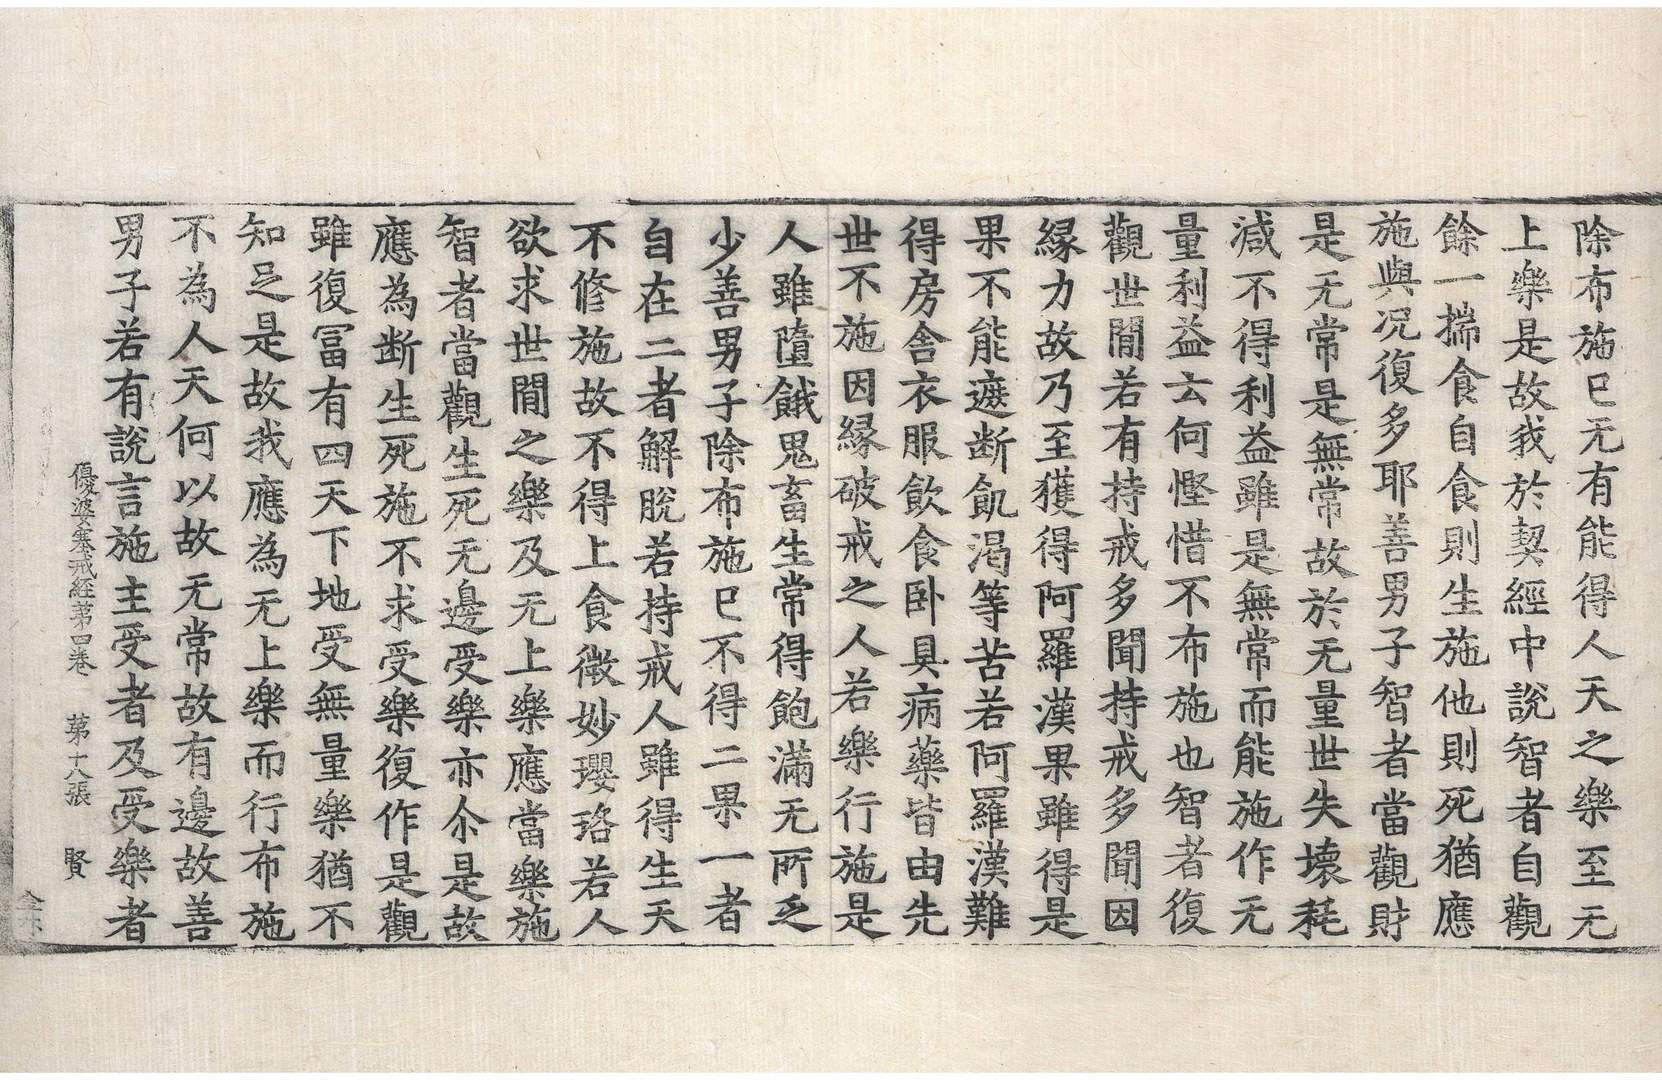 除布施已无有能得人天之樂至无
上樂是故我於契經中說智者自觀
餘一揣食自食則生施他則死猶應
施與况復多耶善男子智者當觀財
是无常是無常故於无量世失壞耗
減不得利益雖是無常而能施作无
量利益云何慳惜不布施也智者復
觀世間若有持戒多聞持戒多聞因
縁力故乃至獲得阿羅漢果雖得是
果不能遮断飢渴等苦若阿羅漢難
得房舍衣服飲食卧具病藥皆由先
世不施因縁破戒之人若樂行施是
人雖墮餓鬼畜生常得飽滿无所乏
少善男子除布施已不得二果一者
自在二者解脫若持戒人雖得生天
不修施故不得上食微妙瓔珞若人
欲求世間之樂及无上樂應當樂施
智者當觀生死无邊受樂亦尒是故
應為断生死施不求受樂復作是觀
雖復冨有四天下地受無量樂猶不
知足是故我應為无上樂而行布施
不為人天何以故无常故有邊故善
男子若有說言施主受者及受樂者
優婆塞戒經第四卷 第十八張 賢